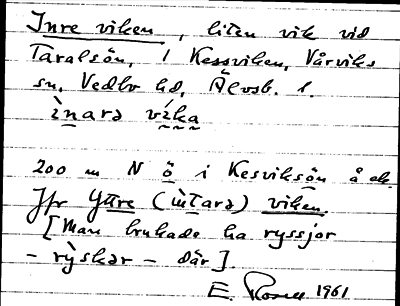 Inre viken, liten vik vid
Taralsön, i Kessviken, Vårviks
sn, Vedbo hd, Älvsb. l.
ìnarə víka
200 m N ö i Kesviksön å ek.
Jfr Yttre (ìntarə) viken.
[Man brukade ha ryssjor
- rỳskər - där].
E. 1961